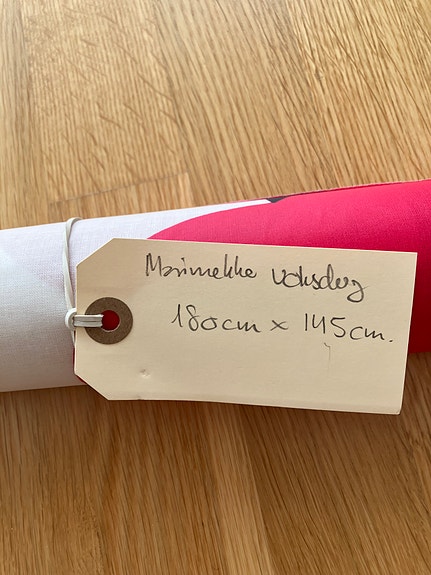 Marimekko voksdug
180cm x 145cm.